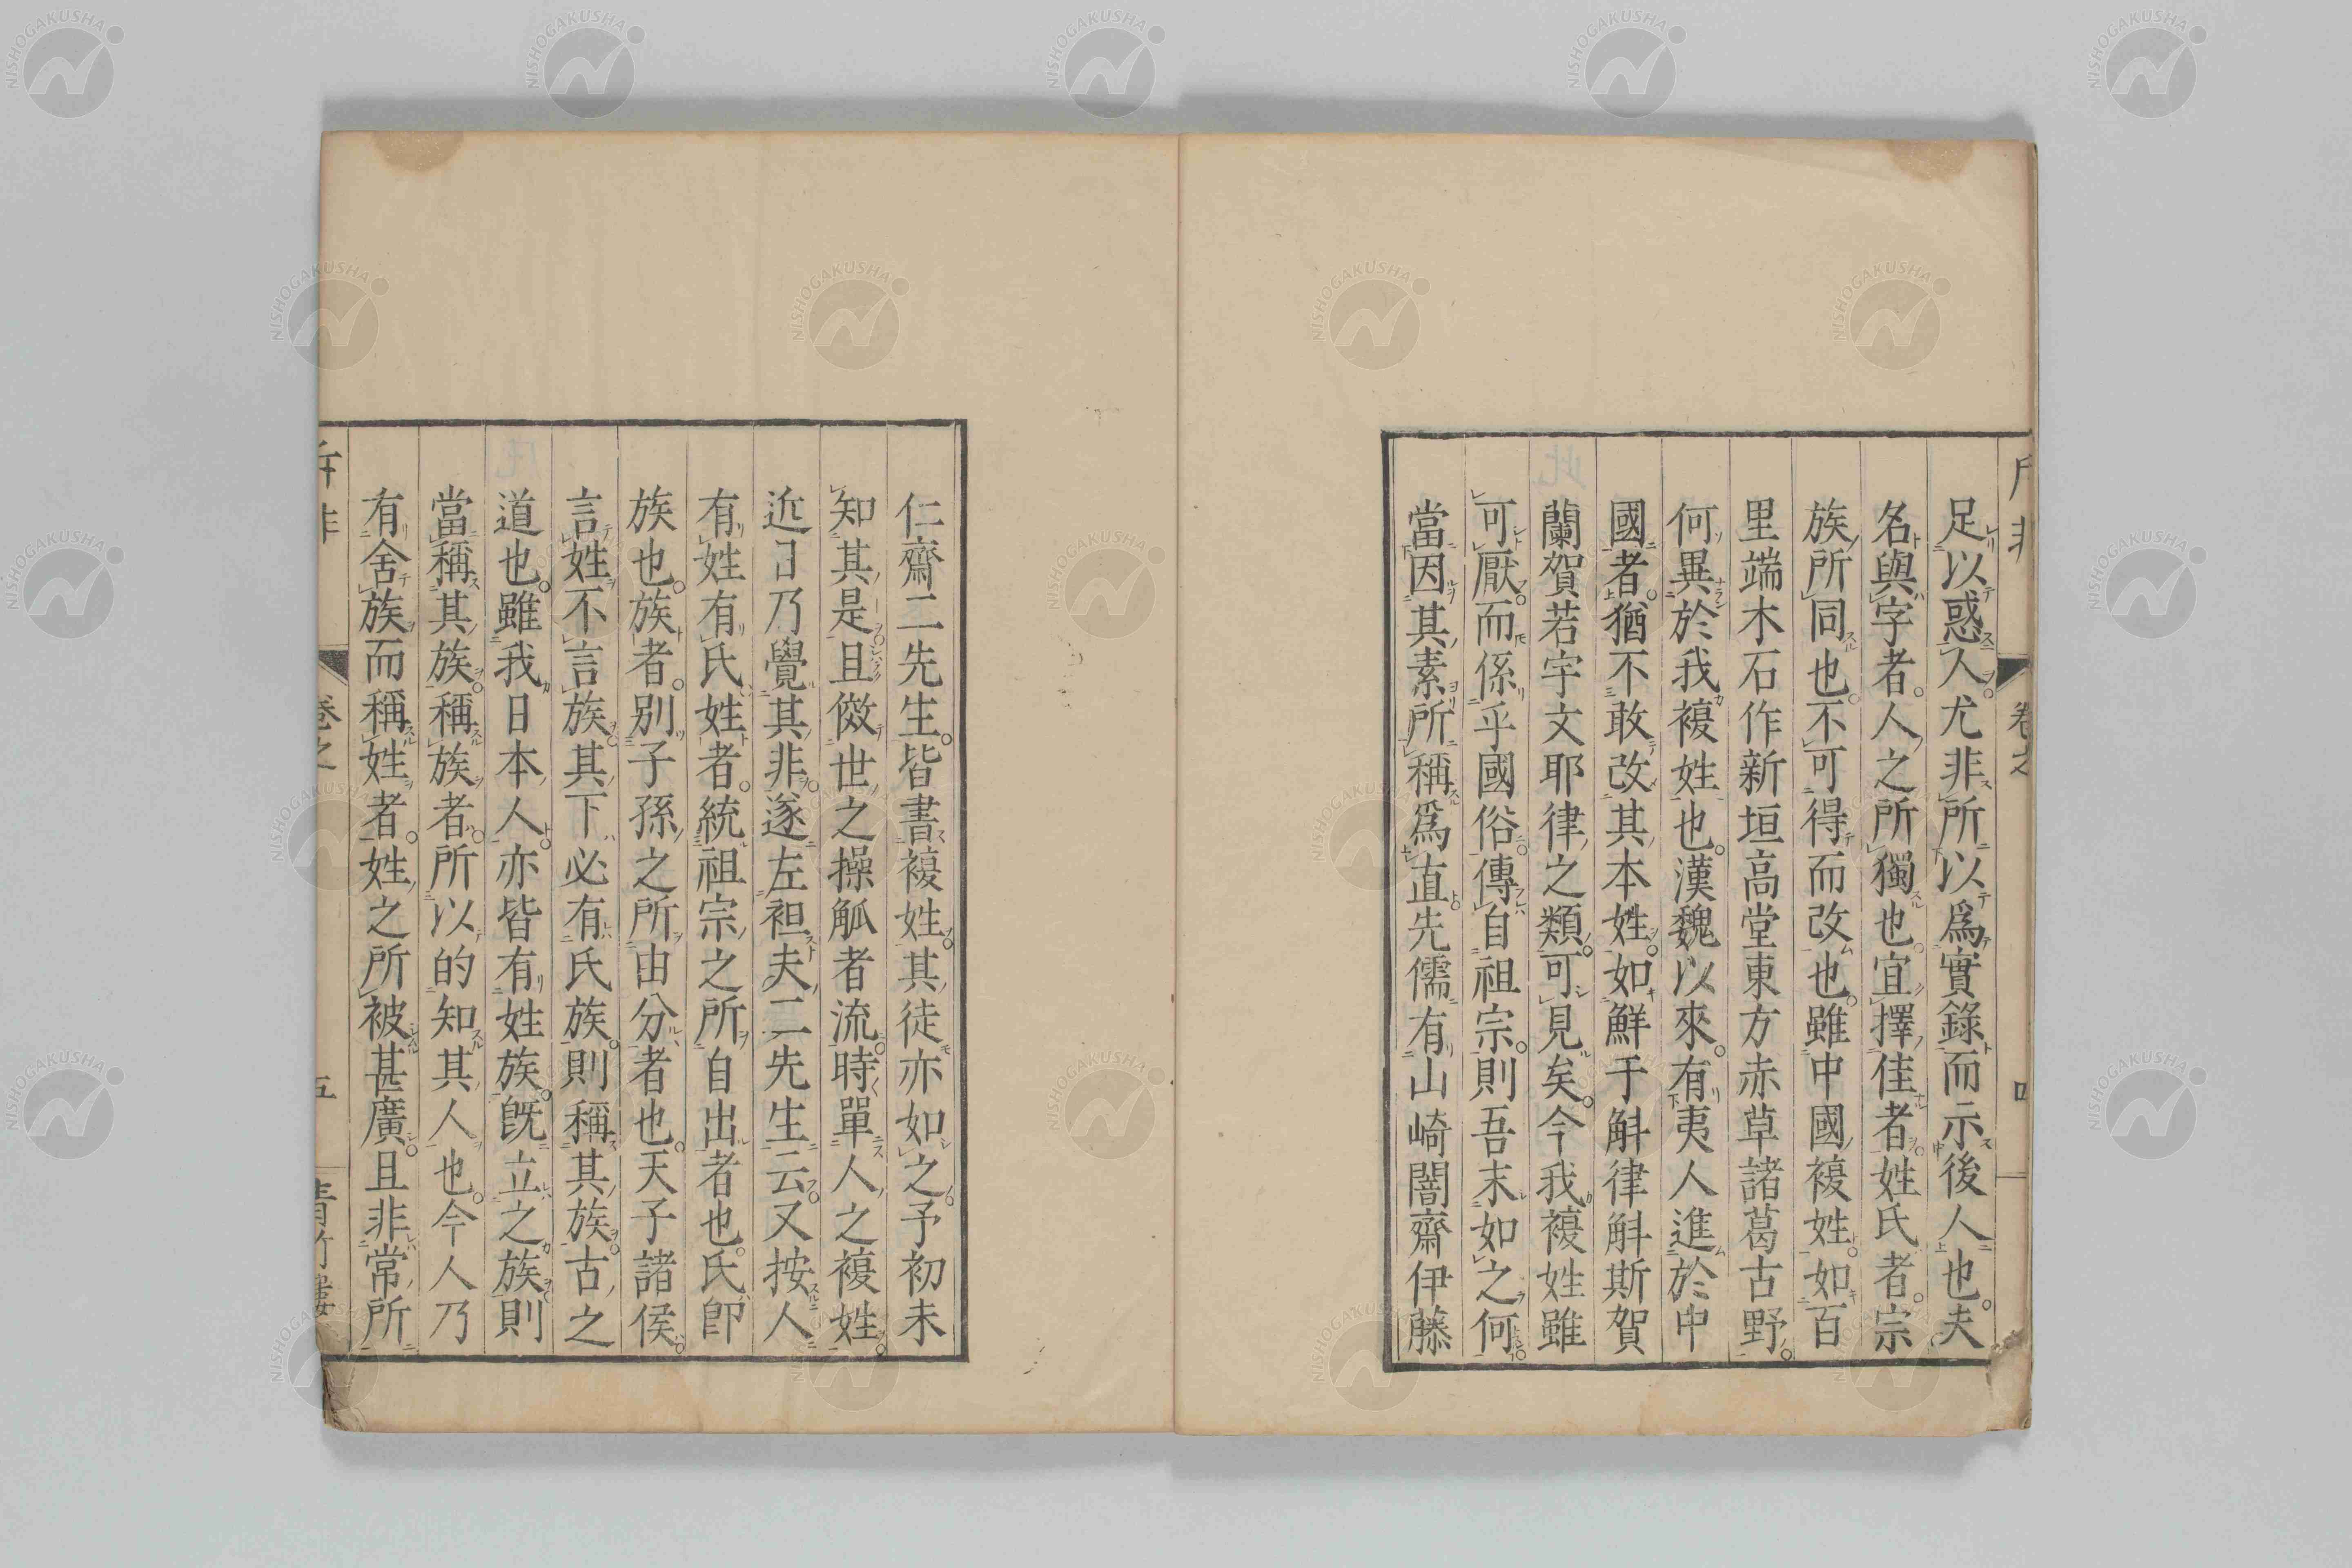 足以惑人尤非所以爲實錄而示後人也。夫
名與字者。人之所獨也。宜擇佳者。姓氏者。宗
族所同也。不可得而改也。雖中國複姓。如百
里端木石作新垣高堂東方赤草諸葛古野。
何異於我複姓也。漢魏以來。有夷人進於中
國者。猶不敢改其本姓。如鮮于斛律斛斯賀
蘭賀若宇文耶律之類。可見矣。今我複姓雖
可厭。而係乎國俗。傳自祖宗。則吾末如之何。
當因其素所稱爲直。先儒有山崎闇齋伊藤
仁齋二先生。皆書複姓。其徒亦如之。予初未
知其是。且傚世之操觚者流。時單人之複姓。
近日乃覺其非。遂左袒夫二先生云。又按人
有姓有氏。姓者。統祖宗之所自出者也。氏卽
族也。族者。別子孫之所由分者也。天子諸侯。
言姓不言族。其下必有氏族。則稱其族。古之
道也。雖我日本人。亦皆有姓族。旣立之族。則
當稱其族。稱族者。所以的知其人也。今人乃
有舍族而稱姓者。姓之所被甚廣。且非常所
卷之
四
卷之
五